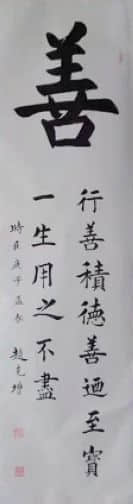 善
行善積德善迺至寶
一生用之不盡
時在庚子孟春 趙克增